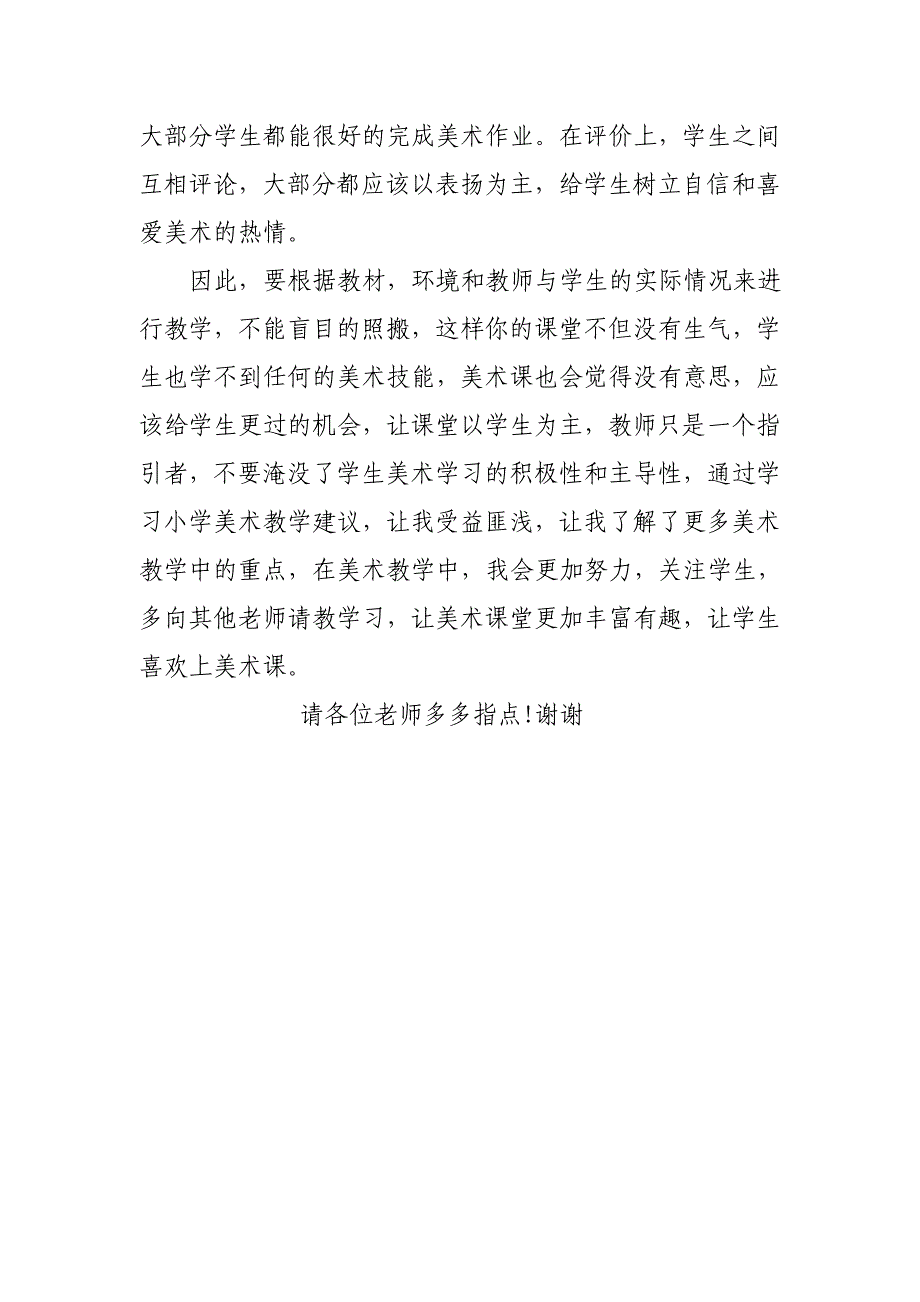 大部分学生都能很好的完成美术作业。在评价上，学生之间
互相评论，大部分都应该以表扬为主，给学生树立自信和喜
爱美术的热情。
因此，要根据教材，环境和教师与学生的实际情况来进
行教学，不能盲目的照搬，这样你的课堂不但没有生气，学
生也学不到任何的美术技能，美术课也会觉得没有意思，应
该给学生更过的机会，让课堂以学生为主，教师只是一个指
引者，不要淹没了学生美术学习的积极性和主导性，通过学
习小学美术教学建议，让我受益匪浅，让我了解了更多美术
教学中的重点，在美术教学中，我会更加努力，关注学生，
多向其他老师请教学习，让美术课堂更加丰富有趣，让学生
喜欢上美术课。
请各位老师多多指点!谢谢